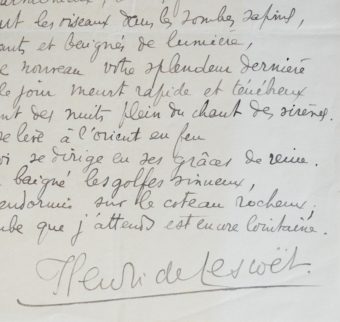 ut les oiseaux dans les sombres sapins,
ants et baignés de lumière,
e nouveau votre splendeur dernière
le jour meurt rapide et ténébreux
nt des nuits plein du chant des sirènes.
se lève à l'orient en feu
oi se dirige en ses grâces de reine.
baigné les golfes sinueux,
endormis sur le coteau rocheux;
ube que j'attends est encore lointaine.
Henri de Lescoët.